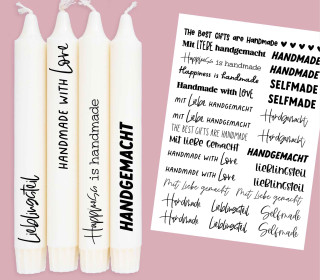 Lieblingsteil
HANDMADE WITH Love
Happiness is handmade
HANDGEMACHT
THE BEST GIFTS ARE HANDMADE
Mit LIEBE handgemacht
Happiness is handmade
Happiness is handmade
Handmade with Love
mit Liebe HANDGEMACHT
mit Liebe HANDGEMACHT
THE BEST GIFTS ARE HANDMADE
Mit Liebe Gemacht
HANDMADE WITH Love
HANDMADE WITH Love
Mit Liebe gemacht Mit Liebe gemacht
Handmade Lieblingsteil Selfmade
Handmade Lieblingsteil Selfmade
HANDMADE
HANDMADE
SELFMADE
SELFMADE
Handgemacht
Handgemacht
HANDGEMACHT
lieblingsteil
lieblingsteil